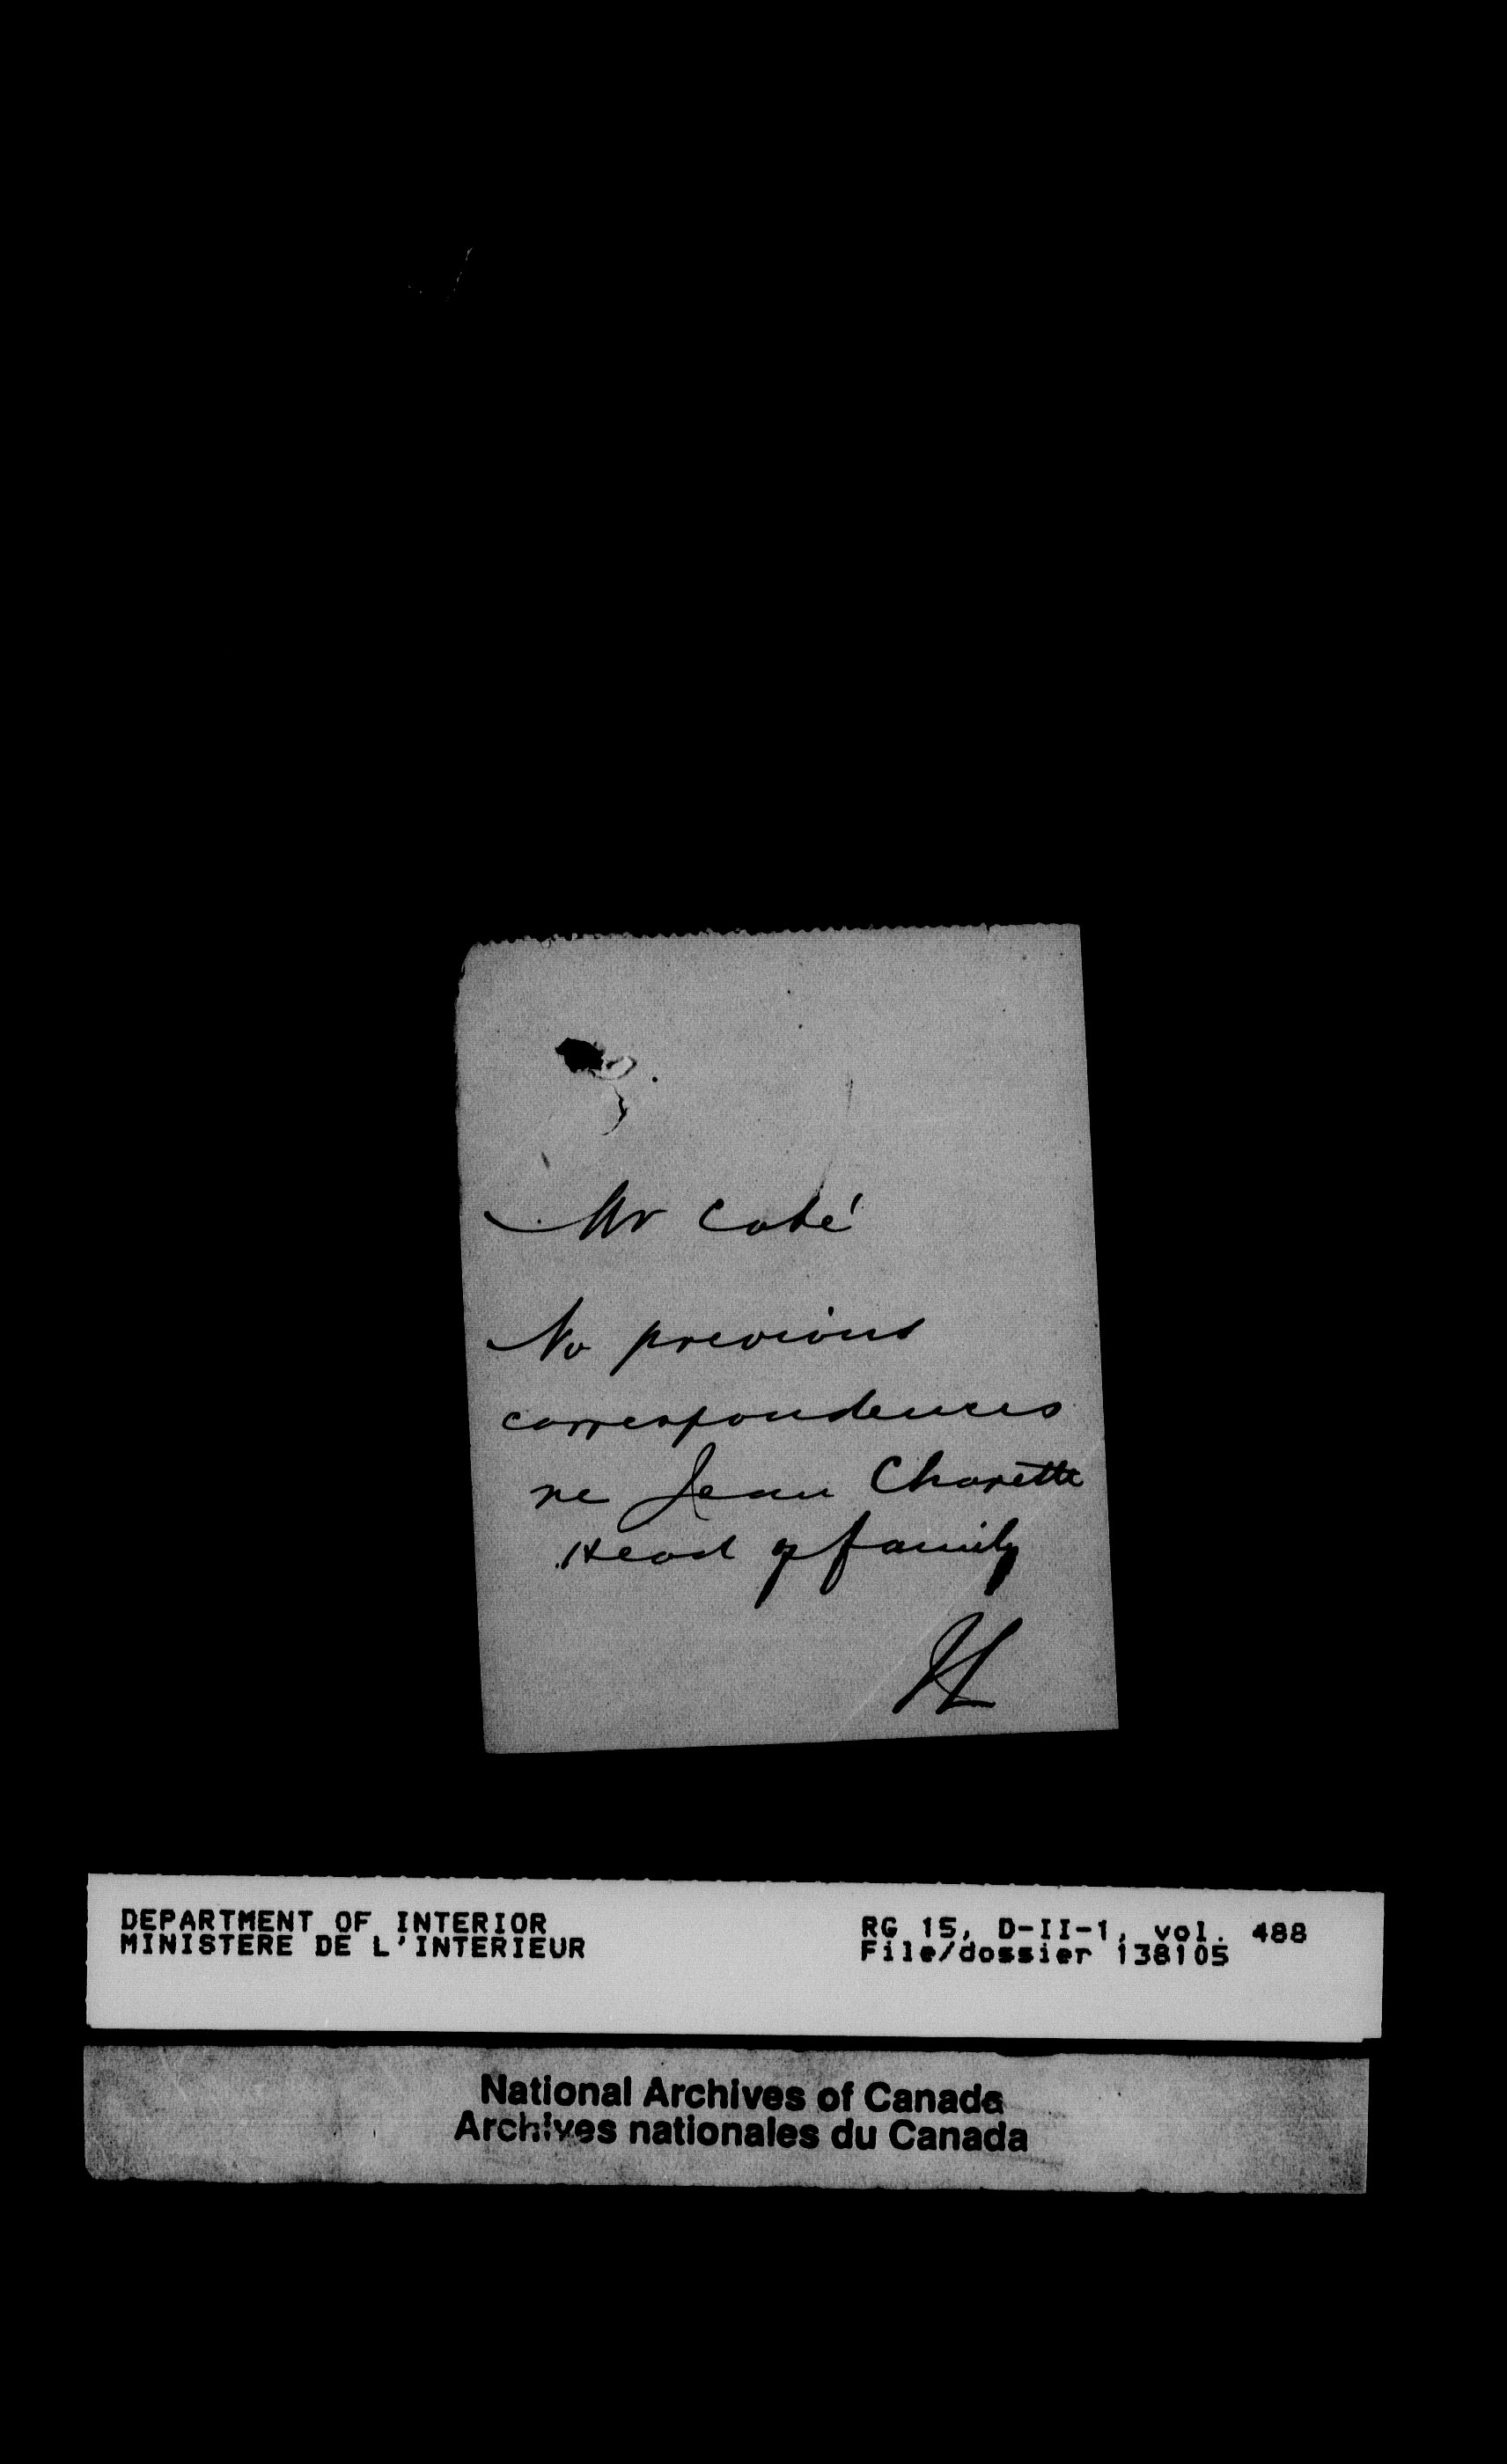 Mr Coté
No previous
correspondences
re Jean Charette
Head of family
DEPARTMENT OF INTERIOR
MINISTERE DE L'INTERIEUR
RG 15, D-II-1, vol. 488
File/dossier 138105
National Archives of Canada
Archives nationales du Canada